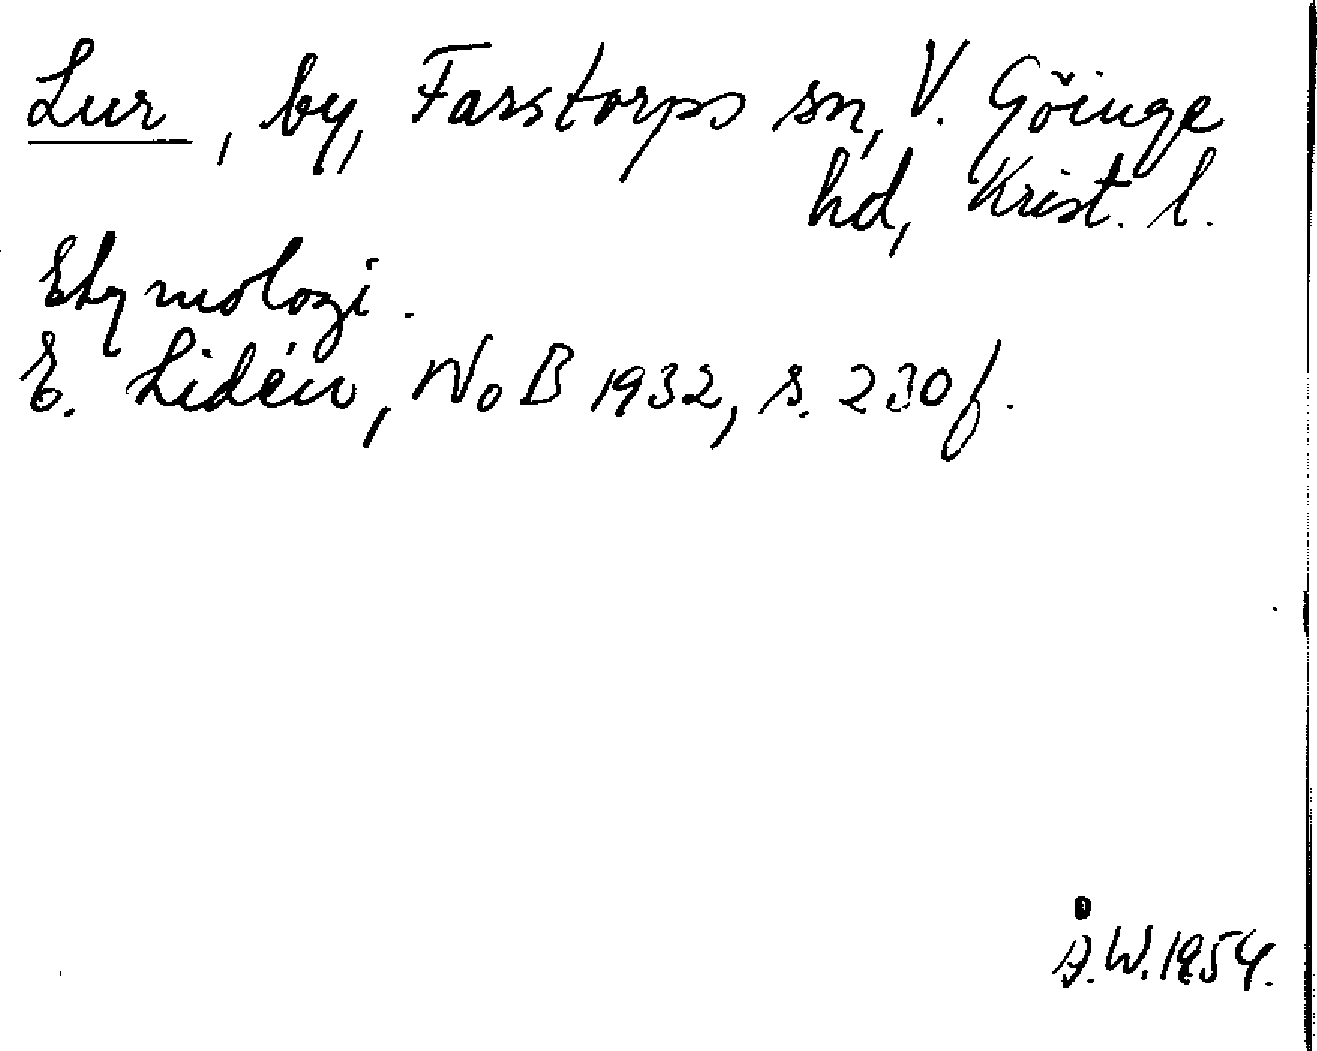 Lur, by, Farstorps sn, V. Göinge
hd, Krist. l.
Etymologi.
E. Lidén, NoB 1932, s. 230 f.
Å.W. 1954.